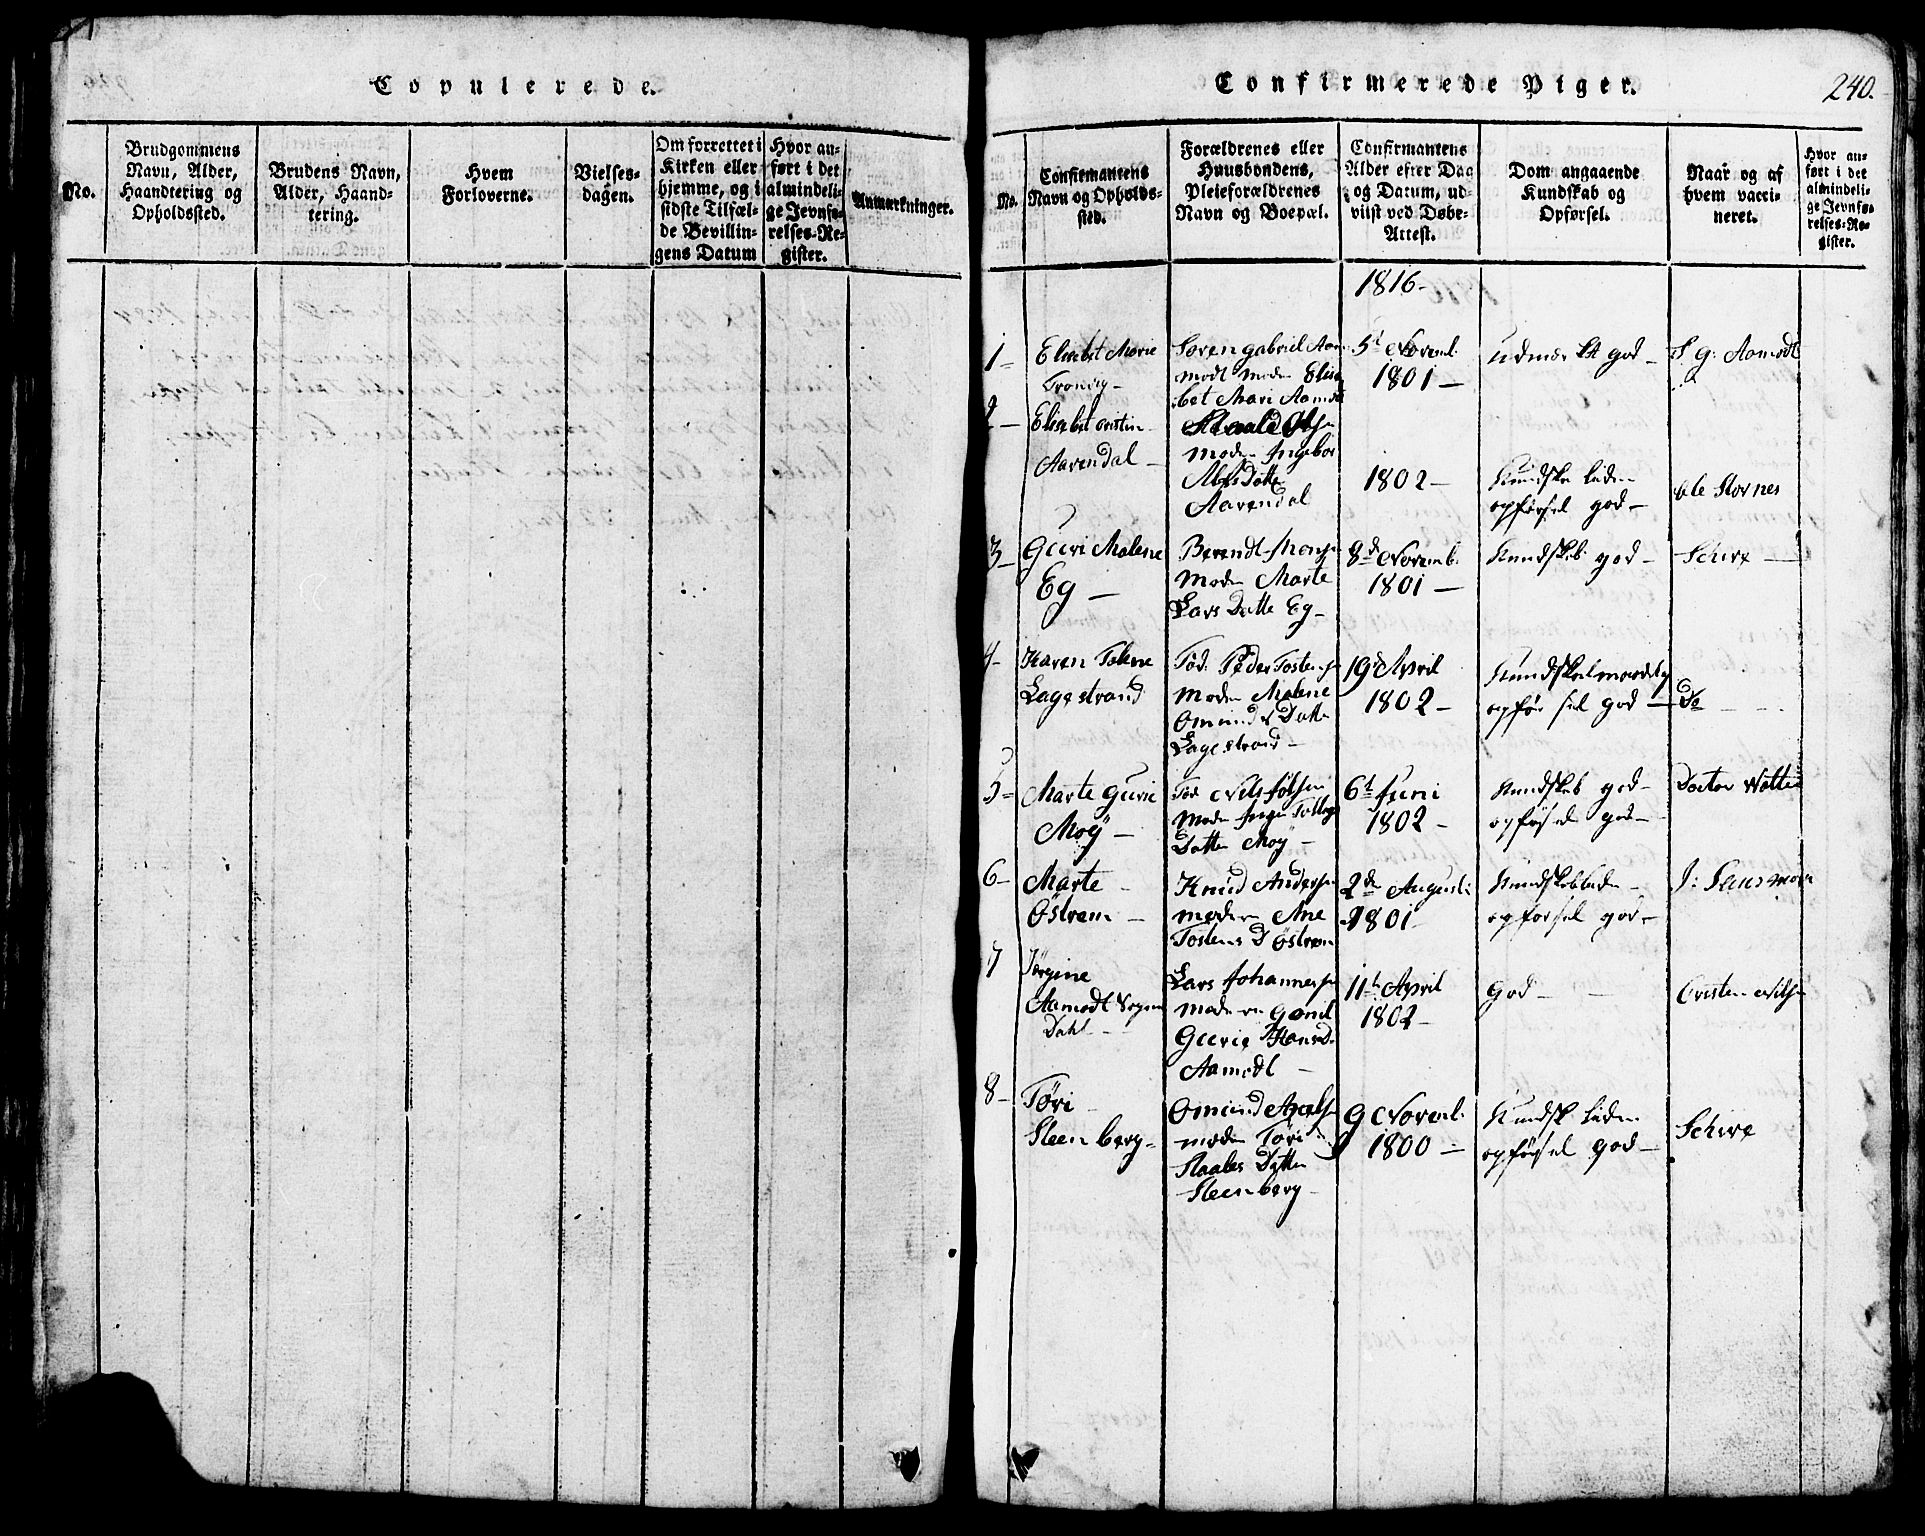 Copulerede.
No.
Brudgommens
Navn, Alder,
Haandtering og
Opholdssted.
Brudens Navn,
Alder, Haand-
tering.
Hvem
Forloverne.
Vielses-
dagen.
Om forrettet i
Kirken eller
hjemme, og i
sidste Tilfæl-
de Bevillin-
gens Datum
Hvor an-
ført i det
almindeli-
ge Jevnfø-
relses-Re-
gister.
Anmærkninger.
Confirmerede Piger.
240.
No.
Confirmantens
Navn og Opholds-
sted.
Forældrenes eller
Huusbondens,
Pleieforældrenes
Navn og Boepæl.
Confirmantens
Alder efter Dag
og Datum, ud-
viist ved Døbe-
Attest.
Dom angaaende
Kundskab og
Opførsel.
Naar og af
hvem vacci-
neret.
Hvor an-
ført i det
almindeli-
ge Jevnfø-
relses-Re-
gister.
1816-
1- Elisabet Marie
Tronvig-
Soren gabriel Aam
modt moder Elisa
bet Mari Aamdt
5t Noveml.
1801-
god-
S g: Aamodt
2- Elisabet Cristin
Aarendal-
moder Ingebor
Alfs Datter
Aarendal
1802-
Kundsk liden
opførsel god-
Ole Stornes
3- Guri Malene
Eg-
Berendt Monse
moder Marte
Lars Datte Eg-
8d Novemb.
1801-
Kundskab god-
Schive-
4- Karen Talene
Lagestrand
Fød: Peder Tostense
moder Malene
Omund s Datte
Lagestrand-
19d April
1802-
Kundskab maadelig
opførsel god-
Do
5- Marte Gurie
Moÿ-
Fød Nils
moder Inger
Datter Moÿ-
6t Juni
1802-
Kundskab god-
opførsel god-
Doctor
6- Marte-
Östrem-
Knud Anderse
moderen Ane
Tostens D Östrem
2de August:
1801
Kundskab liden-
opforsel god-
7 Jørgine
Aamodt Sogn
Dahl-
Lars Johannese
moderen
Gurie Hansd-
Aamodt-
11t April
1802-
God-
Cristen Nilse
8- Tøri-
Steenberg-
Omund Axelse
moder Tøri
Staales Datter
Steenberg-
9 Noveml.
1800-
Kundsk liden
opførsel god-
Schive